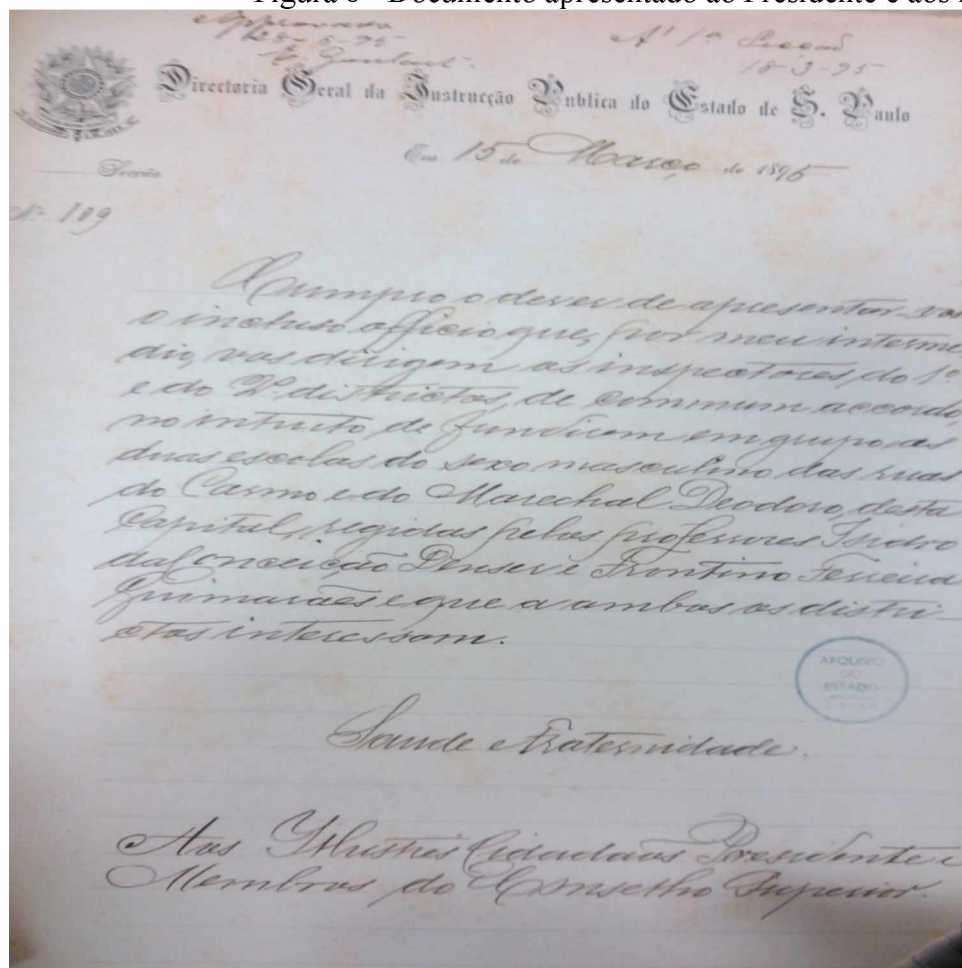 Figura 6 - Documento apresentado ao Presidente e aos
Approvado
A' 1ª Secção
28-5-95
18-3-95
Directoria Geral da Instrucção Publica do Estado de S. Paulo
Em 15 de Março de 1895
Secção
Nº 109
Cumpro o dever de apresentar-vos
o incluso officio que, por meu interme
dio, vos dirigem os inspectores do 1º
e do 2º districtos, de commum accordo,
no intuito de fundirem em grupo as
duas escolas do sexo masculino das ruas
do Carmo e do Marechal Deodoro, desta
Capital, regidas pelos professores Isidro
da Conceição Denser e Frontino Ferreira
Guimarães e que a ambos os distri-
ctos interessam.
ARQUIVO
DO
ESTADO
Saude e Fraternidade.
Aos Illustres Cidadaõs Presidente e
Membros do Conselho Superior.